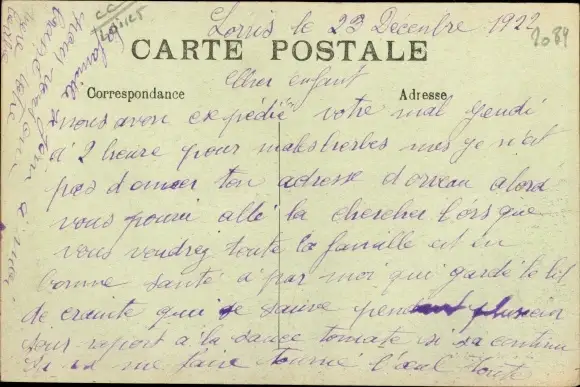 Lorris le 23 Decembre 1922
CARTE POSTALE
Cher enfant
Correspondance
Adresse
nous avon expédié votre mal jeudi
a 2 heure pour malesherbes mes je n'ai
pas donner ton adresse d'orveau abord
vous pourri allé la chercher lorsque
vous voudrez toute la famille est en
bonne santé a par moi qui garde le lit
de crainte qui se sauve pendant plusieur
jour raport a la sauce tomate si sa continu
sa me faire tourné l'œul toute
la famille
2089